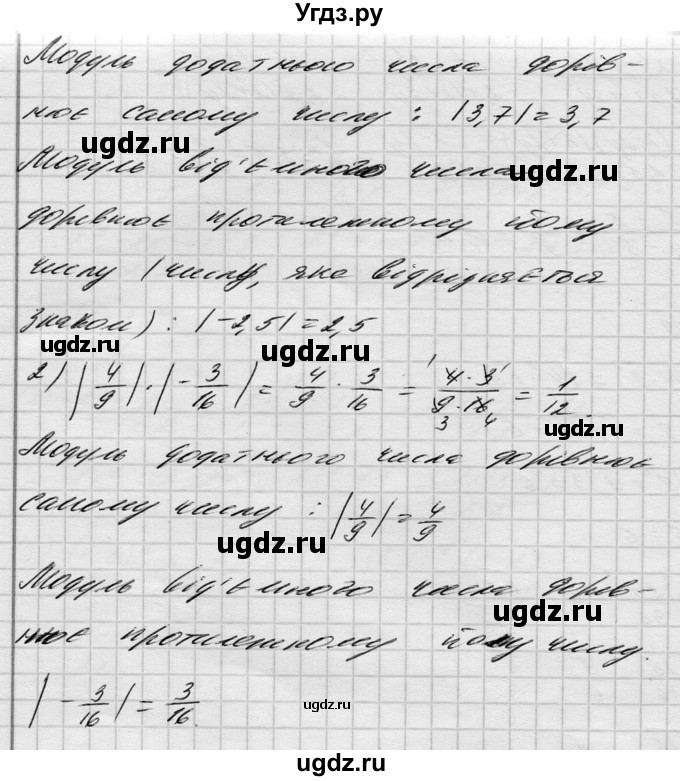 Угдз.ру
Модуль додатнього числа дорів-
нює самому числу : |3,7| = 3,7
ugdz.ru ugdz.ru
Модуль від'ємного числа
дорівнює протилежному йому
числу (числу, яке відрізняється
знаком) : |-2,5| = 2,5
ugdz.ru ugdz.ru
2) |4/9| · |-3/16| = 4/9 · 3/16 = 4 · 3 / 9 · 16 = 1/12.
Модуль додатнього числа дорівнює
ugdz.ru ugdz.ru
самому числу : |4/9| = 4/9
ugdz.ru
Модуль від'ємного числа дорів-
ugdz.ru
нює протилежному йому числу.
|-3/16| = 3/16.
ugdz.ru